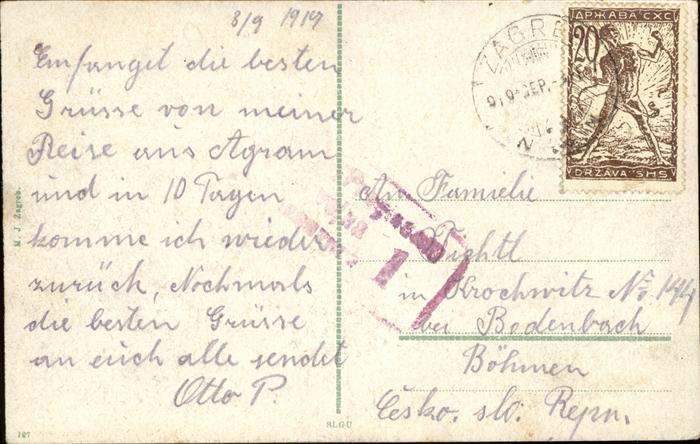 8/9 1919
Emfanget die besten
Grüsse von meiner
Reise aus Agram
und in 10 Tagen
komme ich wieder
zurück, Nochmals
die besten Grüsse
an euch alle sendet
Otto P.
M. J. Zagreb.
167
SLGU
ZAGREB
ДРЖАВА СХС
20
DRŽAVA SHS
1
An Familie
Tichtl
in Krochwitz No 144
bei Bodenbach
Böhmen
Česko. slo. Repu.